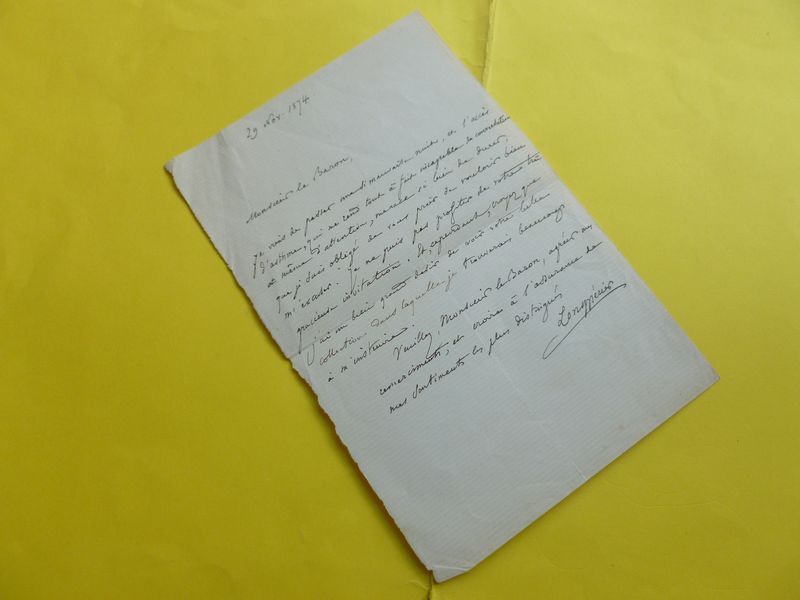 29 Nov. 1874
Monsieur le Baron,
Je viens de passer une mauvaise nuit, et l'accès
d'asthme, qui me rend tout à fait incapable de conversation
et même d'attention, menace si bien de durer,
que je suis obligé de vous prier de vouloir bien
m'excuser. Je ne puis pas profiter de votre très
gracieuse invitation. Et, cependant, croyez que
j'ai un bien grand désir de voir votre belle
collection dans laquelle je trouverais beaucoup
à m'instruire.
Veuillez, Monsieur le Baron, agréer mes
remerciments, et croire à l'assurance de
mes sentiments les plus distingués
Longpérier